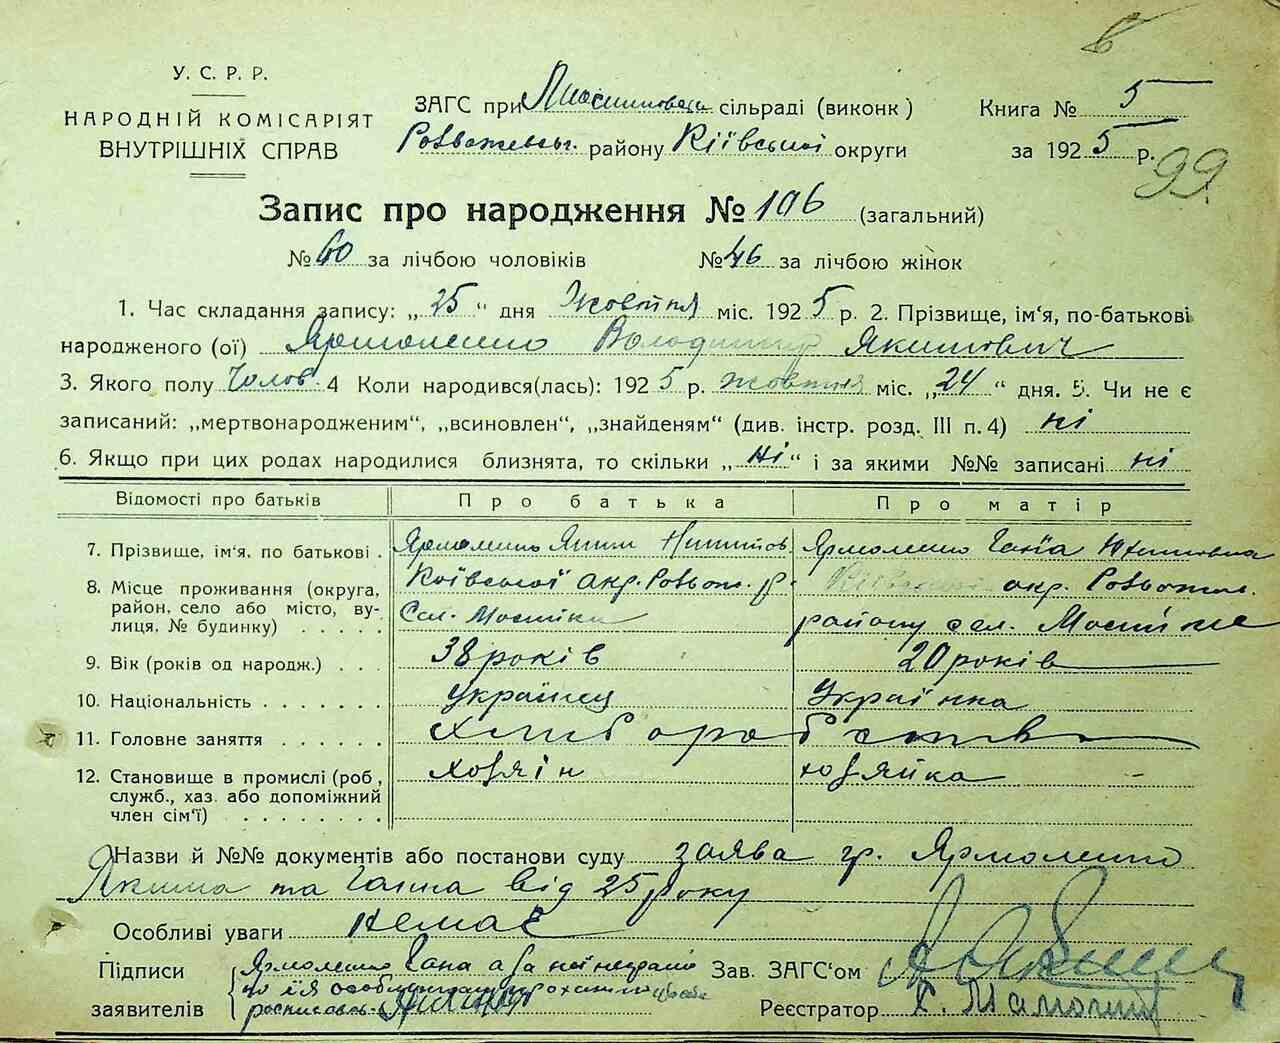 У. С. Р. Р.
НАРОДНІЙ КОМІСАРІЯТ
ВНУТРІШНІХ СПРАВ
ЗАГС при сільраді (виконк)
району Київської округи
Книга № 5
за 1925 р.
99.
Запис про народження № 106 (загальний)
№ 60 за лічбою чоловіків № 46 за лічбою жінок
1. Час складання запису: „25" дня Жовтня міс. 1925 р. 2. Прізвище, ім'я, по-батькові
народженого (ої) Ярмоленко Володимир Якимович
3. Якого полу Чолов. 4 Коли народився(лась): 1925 р. жовтня міс. „24" дня. 5. Чи не є
записаний: „мертвонародженим", „всиновлен", „знайденям" (див. інстр. розд. III п. 4) ні
6. Якщо при цих родах народилися близнята, то скільки „ні" і за якими №№ записані ні
Відомості про батьків Про батька Про матір
7. Прізвище, ім'я, по батькові . Ярмоленко Яким Ярмоленко Ганна
8. Місце проживання (округа, Київської окр. Розваж. р. Київської окр. Розваж.
район, село або місто, ву- Сел. Мосійки району сел. Мосійки
лиця, № будинку) . . . . .
9. Вік (років од народж.) . . . 38 років 20 років
10. Національність . . . . . . . Українец Українка
11. Головне заняття . . . . . . Хліборобство
12. Становище в промислі (роб, хозяїн хозяйка
служб., хаз. або допоміжний
член сім'ї) . . . . . . . .
Назви й №№ документів або постанови суду заява гр. Ярмоленко
Якима та Ганна від 25 року
Особливі уваги немає
Підписи
заявителів
Ярмоленко Гана а за неї неграмо
Зав. ЗАГС'ом
Реєстратор